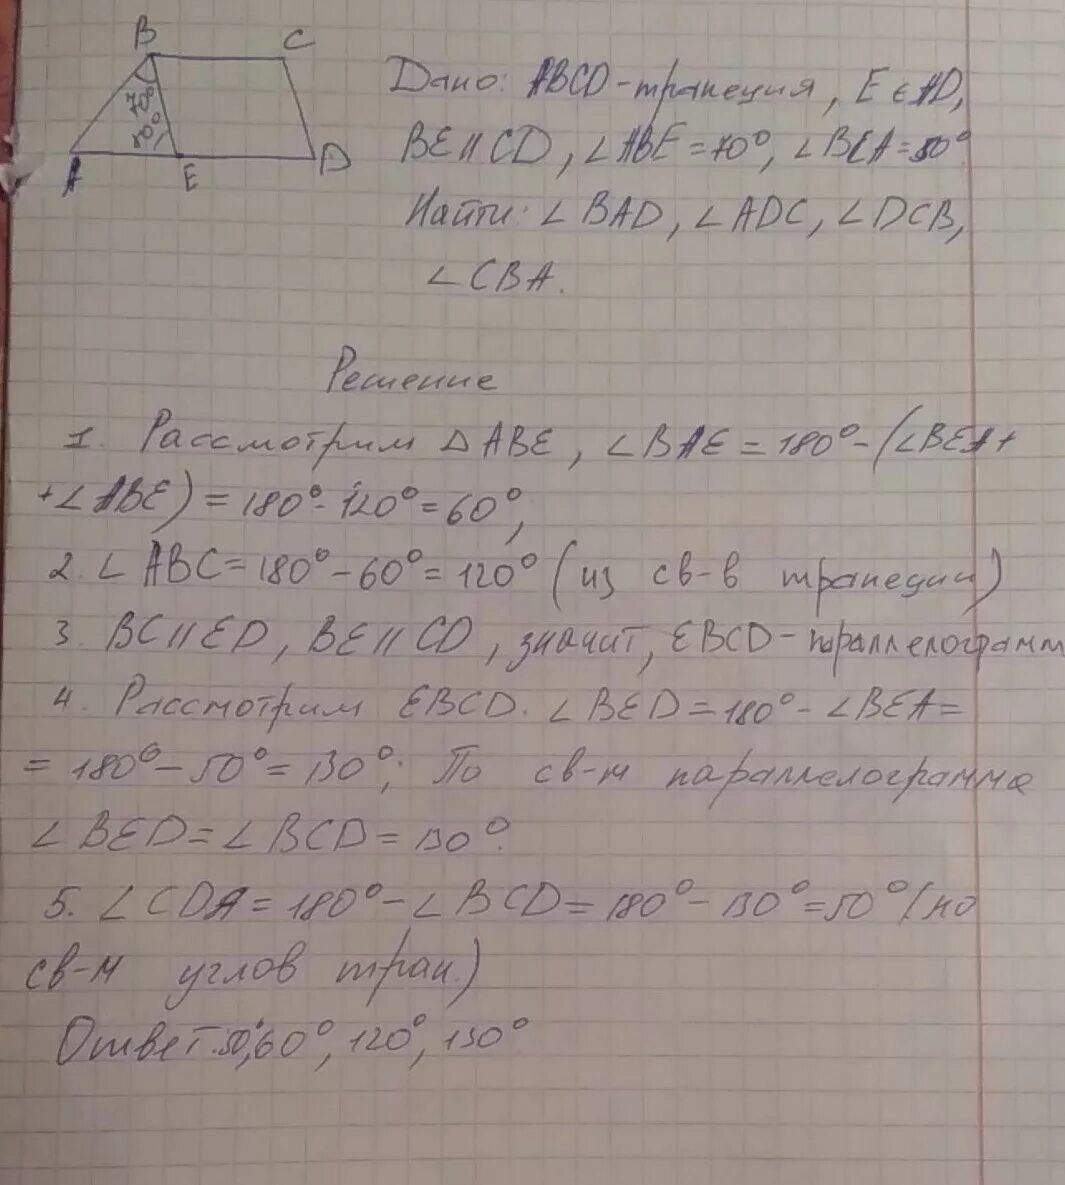 B C
70°
50°
A E D
Дано: ABCD-трапеция, E ∈ AD,
BE || CD, ∠ABE = 70°, ∠BEA = 50°
Найти: ∠BAD, ∠ADC, ∠DCB,
∠CBA.
Решение
1. Рассмотрим △ABE, ∠BAE = 180° - (∠BEA +
+ ∠ABE) = 180° - 120° = 60°;
2. ∠ABC = 180° - 60° = 120° (из св-в трапеции)
3. BC || ED, BE || CD, значит, EBCD - параллелограмм
4. Рассмотрим EBCD. ∠BED = 180° - ∠BEA =
= 180° - 50° = 130°; По св-м параллелограмма
∠BED = ∠BCD = 130°.
5. ∠CDA = 180° - ∠BCD = 180° - 130° = 50° (по
св-м углов трап.)
Ответ: 50°, 60°, 120°, 130°